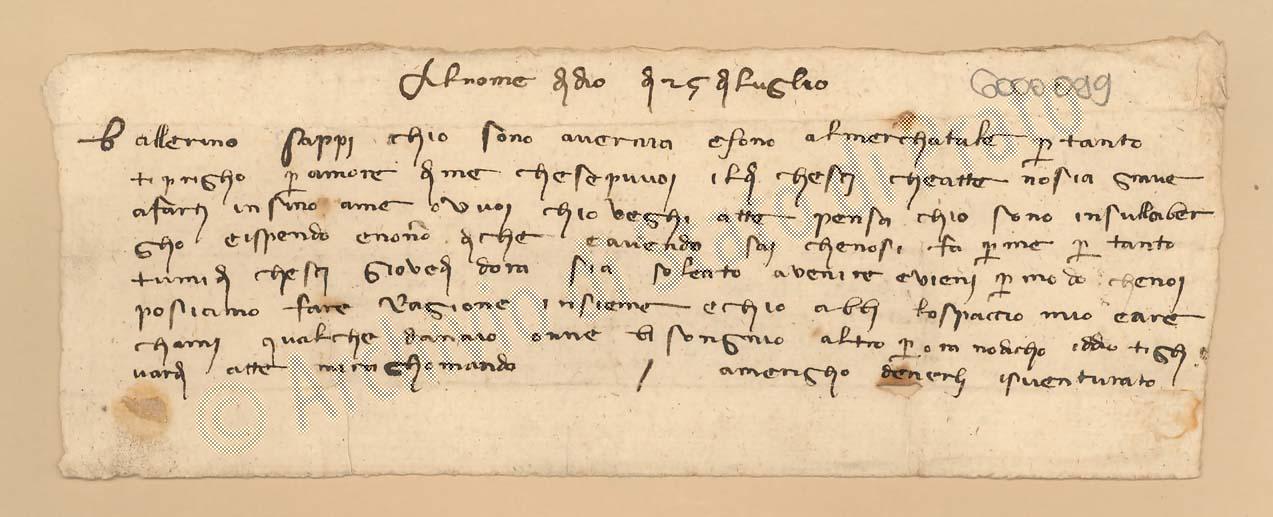 Al nome di dio di 25 di luglio
6000089
Ballerino sappi chio sono a vernia e sono al merchatale per tanto
ti priegho per amore di me che se puuoi il di chesti che atte no sia grave
a farti insino a me o vuoi chio veghi atte pensa chio sono in sull alber
gho e ispendo e non ò di che e avendo sai che no si fa per me per tanto
tu mi di chesti giovedi dora sia solecito a venire e vieni per modo che noi
posiamo fare ragione insieme e chio abbi lo spaccio mio e are
chami qualche danaio onne bisongnio altro per ora no dicho iddio ti ghi
uardi atte mi racchomando / amerigho isventurato
© Archivio di Stato di Prato